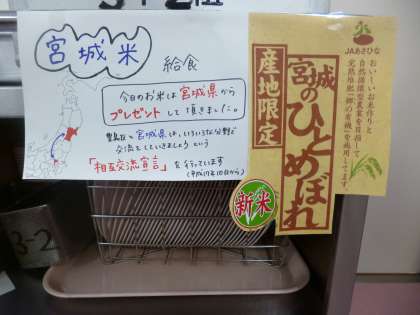 3-2組
宮城米
給食
今日のお米は宮城県から
プレゼントして頂きました。
豊島区と宮城県は、いろいろな分野で
交流をしていきましょうという
「相互交流宣言」を行っています
(平成17年10月から)
JAあさひな
おいしいお米作りと
自然循環型農業を目指して
完熟堆肥「郷の有機」を施用してます。
産地限定
宮城のひとめぼれ
新米
3-2